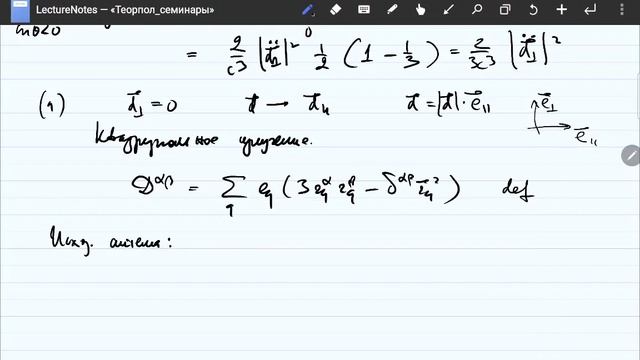 LectureNotes — «Теорпол_семинары»
= 2/c³ |d̈⊥|² 1/2 (1 − 1/3) = 2/3c³ |d̈⊥|²
(1) d⃗⊥ = 0 d⃗ → d⃗∥ d⃗ = |d⃗|·e⃗∥ e⃗⊥
e⃗∥
Квадрупольное излучение.
D^{αβ} = Σ_q e_q (3 r_q^α r_q^β − δ^{αβ} r⃗_q²) def
Исход. система: